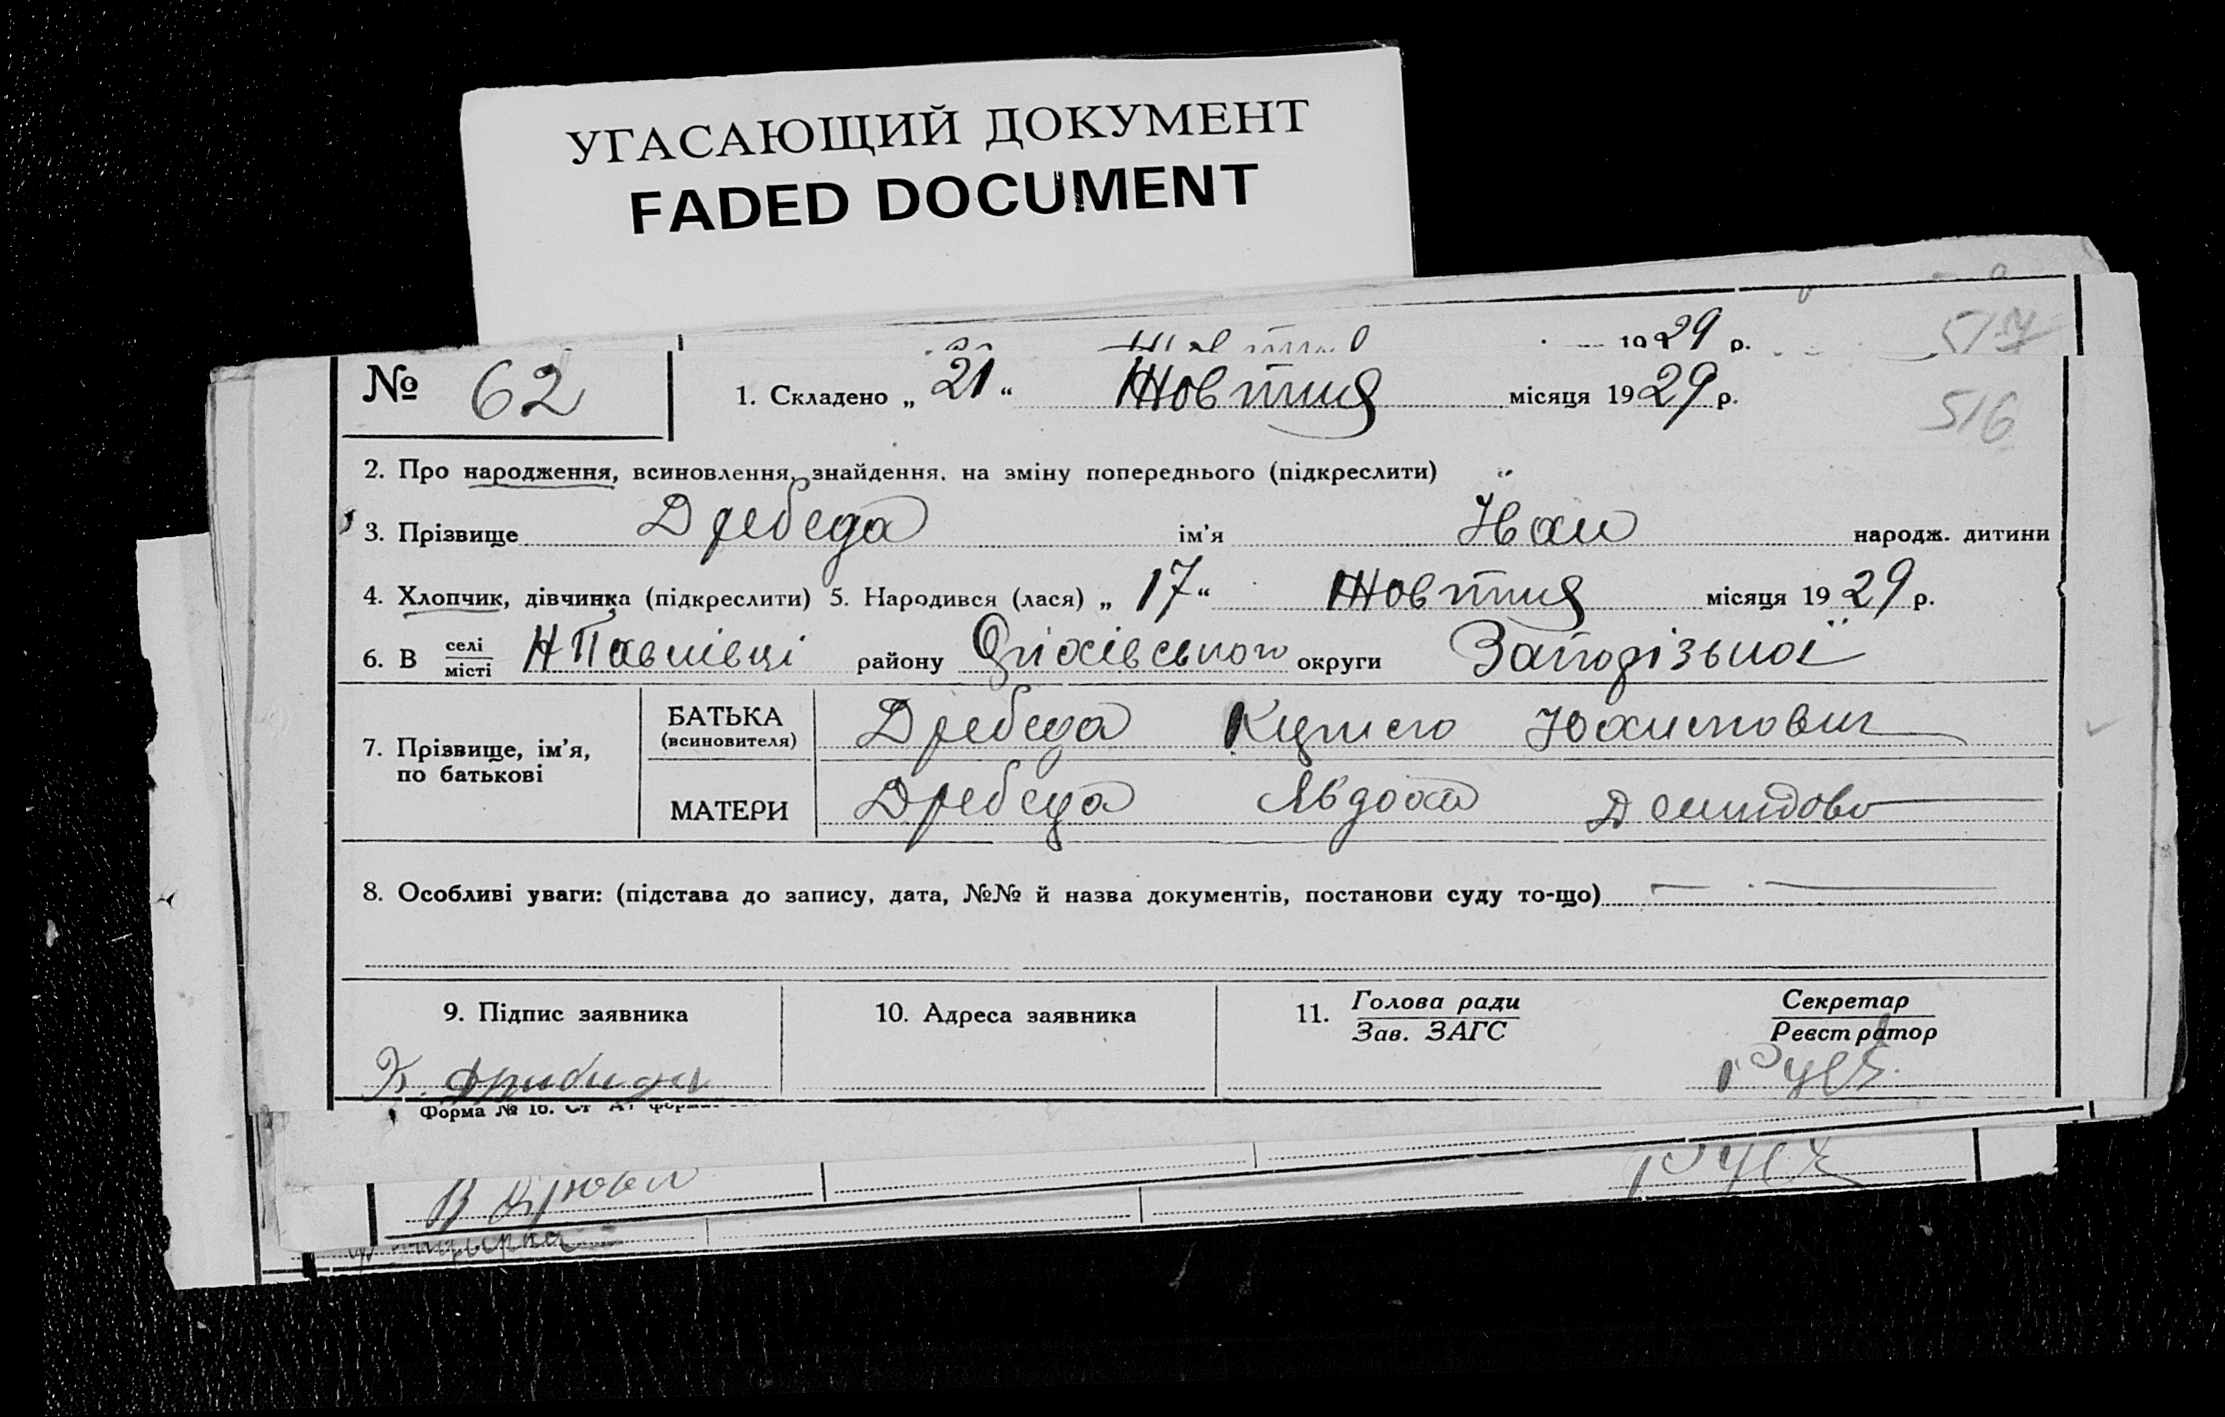 УГАСАЮЩИЙ ДОКУМЕНТ
FADED DOCUMENT
1929 р. 517
№ 62 1. Складено „ 21 “ Жовтня місяця 1929 р.
516
2. Про народження, всиновлення, знайдення, на зміну попереднього (підкреслити)
3. Прізвище Дребеда ім'я Іван народж. дитини
4. Хлопчик, дівчинка (підкреслити) 5. Народився (лася) „ 17 “ Жовтня місяця 1929 р.
6. В селі/місті Н Павлівці району Оріхівського округи Запорізької
7. Прізвище, ім'я, по батькові
БАТЬКА (всиновителя) Дребеда Юхимович
МАТЕРИ Дребеда Явдоха Демидовн
8. Особливі уваги: (підстава до запису, дата, №№ й назва документів, постанови суду то-що)
9. Підпис заявника 10. Адреса заявника 11. Голова ради/Зав. ЗАГС Секретар/Реєстратор
К. Дрибида
Форма № 16.